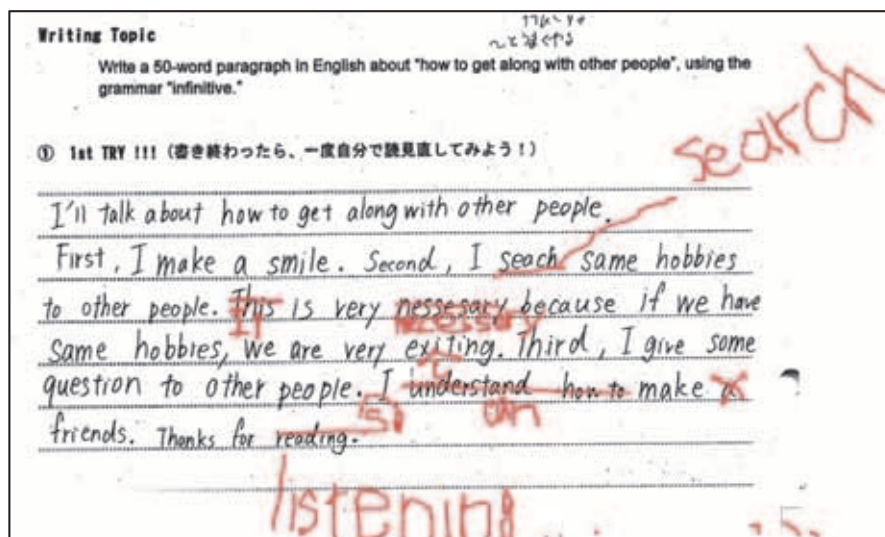 Writing Topic
〜と うまくやる
Write a 50-word paragraph in English about "how to get along with other people", using the
grammar "infinitive."
① 1st TRY !!! (書き終わったら、一度自分で読見直してみよう!)
search
I'll talk about how to get along with other people.
First, I make a smile. Second, I seach same hobbies
to other people. This is very nessesary because if we have
It necessary
same hobbies, we are very exiting. Third, I give some
c
question to other people. I understand how to make a
So can
friends. Thanks for reading.
listening